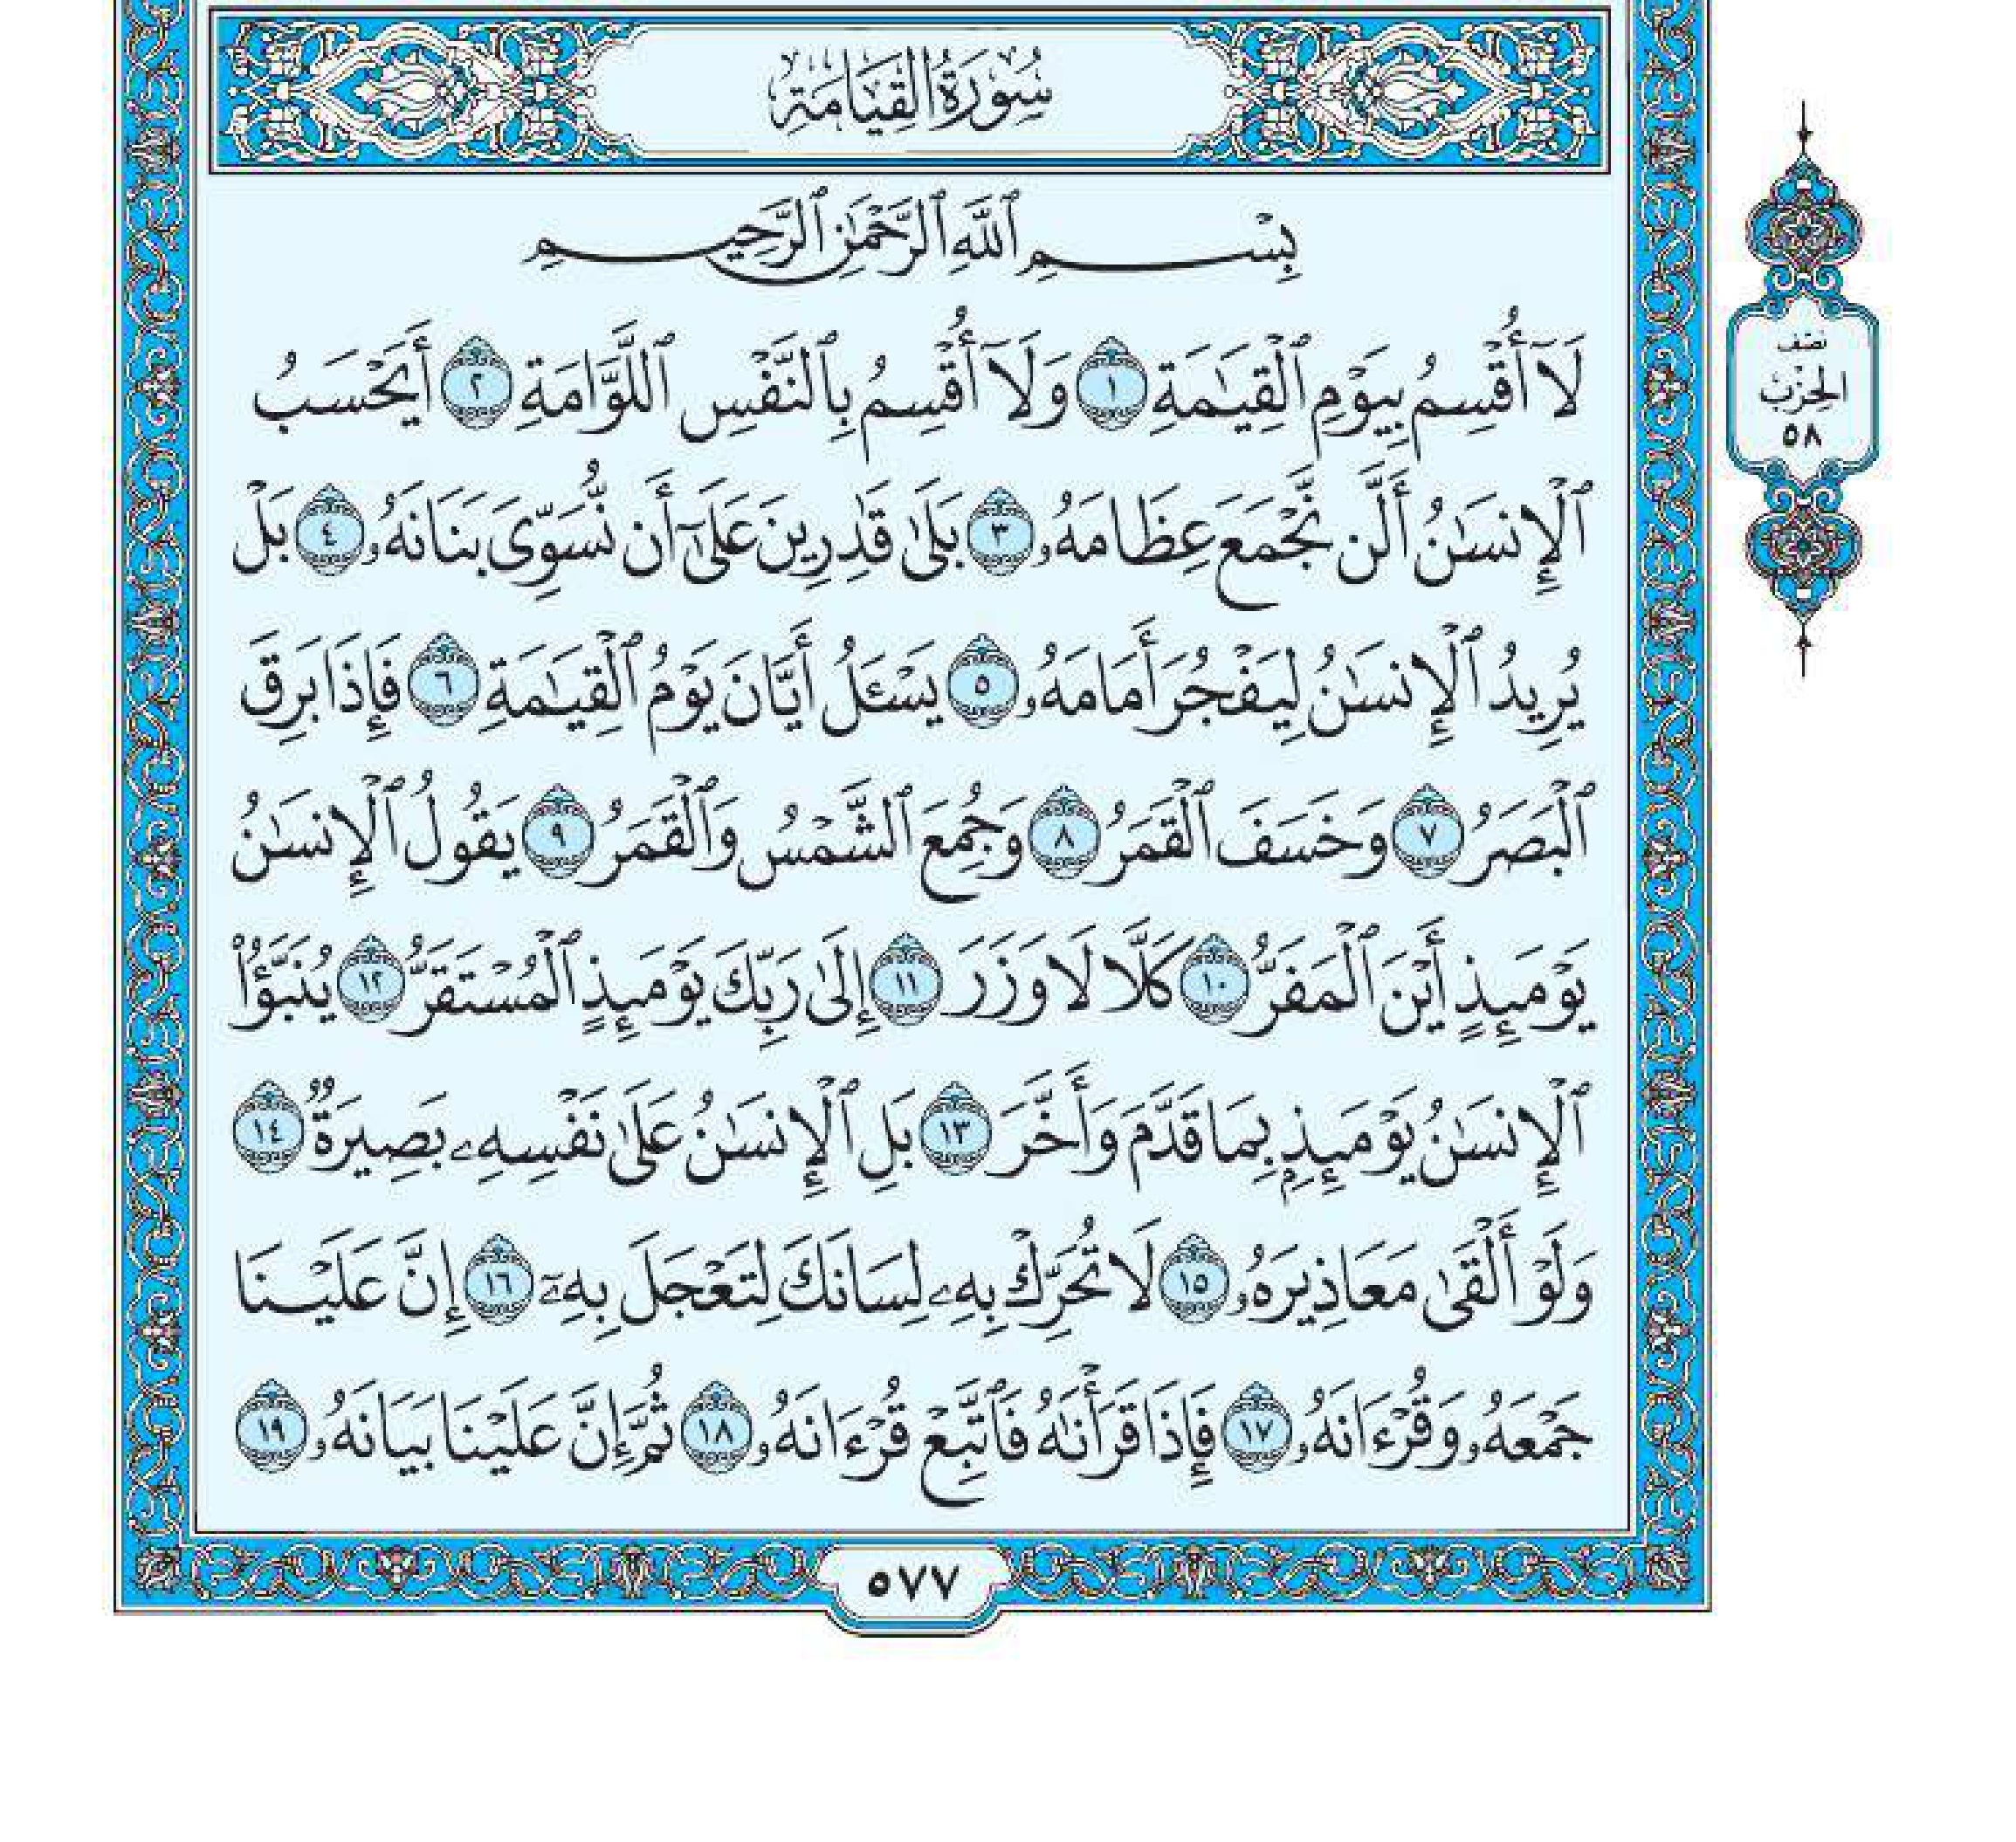 سُورَةُ القِيَامَةِ
بِسْمِ ٱللَّهِ ٱلرَّحْمَٰنِ ٱلرَّحِيمِ
لَآ أُقْسِمُ بِيَوْمِ ٱلْقِيَٰمَةِ ١ وَلَآ أُقْسِمُ بِٱلنَّفْسِ ٱللَّوَّامَةِ ٢ أَيَحْسَبُ
ٱلْإِنسَٰنُ أَلَّن نَّجْمَعَ عِظَامَهُۥ ٣ بَلَىٰ قَٰدِرِينَ عَلَىٰٓ أَن نُّسَوِّىَ بَنَانَهُۥ ٤ بَلْ
يُرِيدُ ٱلْإِنسَٰنُ لِيَفْجُرَ أَمَامَهُۥ ٥ يَسْـَٔلُ أَيَّانَ يَوْمُ ٱلْقِيَٰمَةِ ٦ فَإِذَا بَرِقَ
ٱلْبَصَرُ ٧ وَخَسَفَ ٱلْقَمَرُ ٨ وَجُمِعَ ٱلشَّمْسُ وَٱلْقَمَرُ ٩ يَقُولُ ٱلْإِنسَٰنُ
يَوْمَئِذٍ أَيْنَ ٱلْمَفَرُّ ١٠ كَلَّا لَا وَزَرَ ١١ إِلَىٰ رَبِّكَ يَوْمَئِذٍ ٱلْمُسْتَقَرُّ ١٢ يُنَبَّؤُا۟
ٱلْإِنسَٰنُ يَوْمَئِذِۭ بِمَا قَدَّمَ وَأَخَّرَ ١٣ بَلِ ٱلْإِنسَٰنُ عَلَىٰ نَفْسِهِۦ بَصِيرَةٌ ١٤
وَلَوْ أَلْقَىٰ مَعَاذِيرَهُۥ ١٥ لَا تُحَرِّكْ بِهِۦ لِسَانَكَ لِتَعْجَلَ بِهِۦٓ ١٦ إِنَّ عَلَيْنَا
جَمْعَهُۥ وَقُرْءَانَهُۥ ١٧ فَإِذَا قَرَأْنَٰهُ فَٱتَّبِعْ قُرْءَانَهُۥ ١٨ ثُمَّ إِنَّ عَلَيْنَا بَيَانَهُۥ ١٩
٥٧٧
نصْف
الحِزْبْ
٥٨